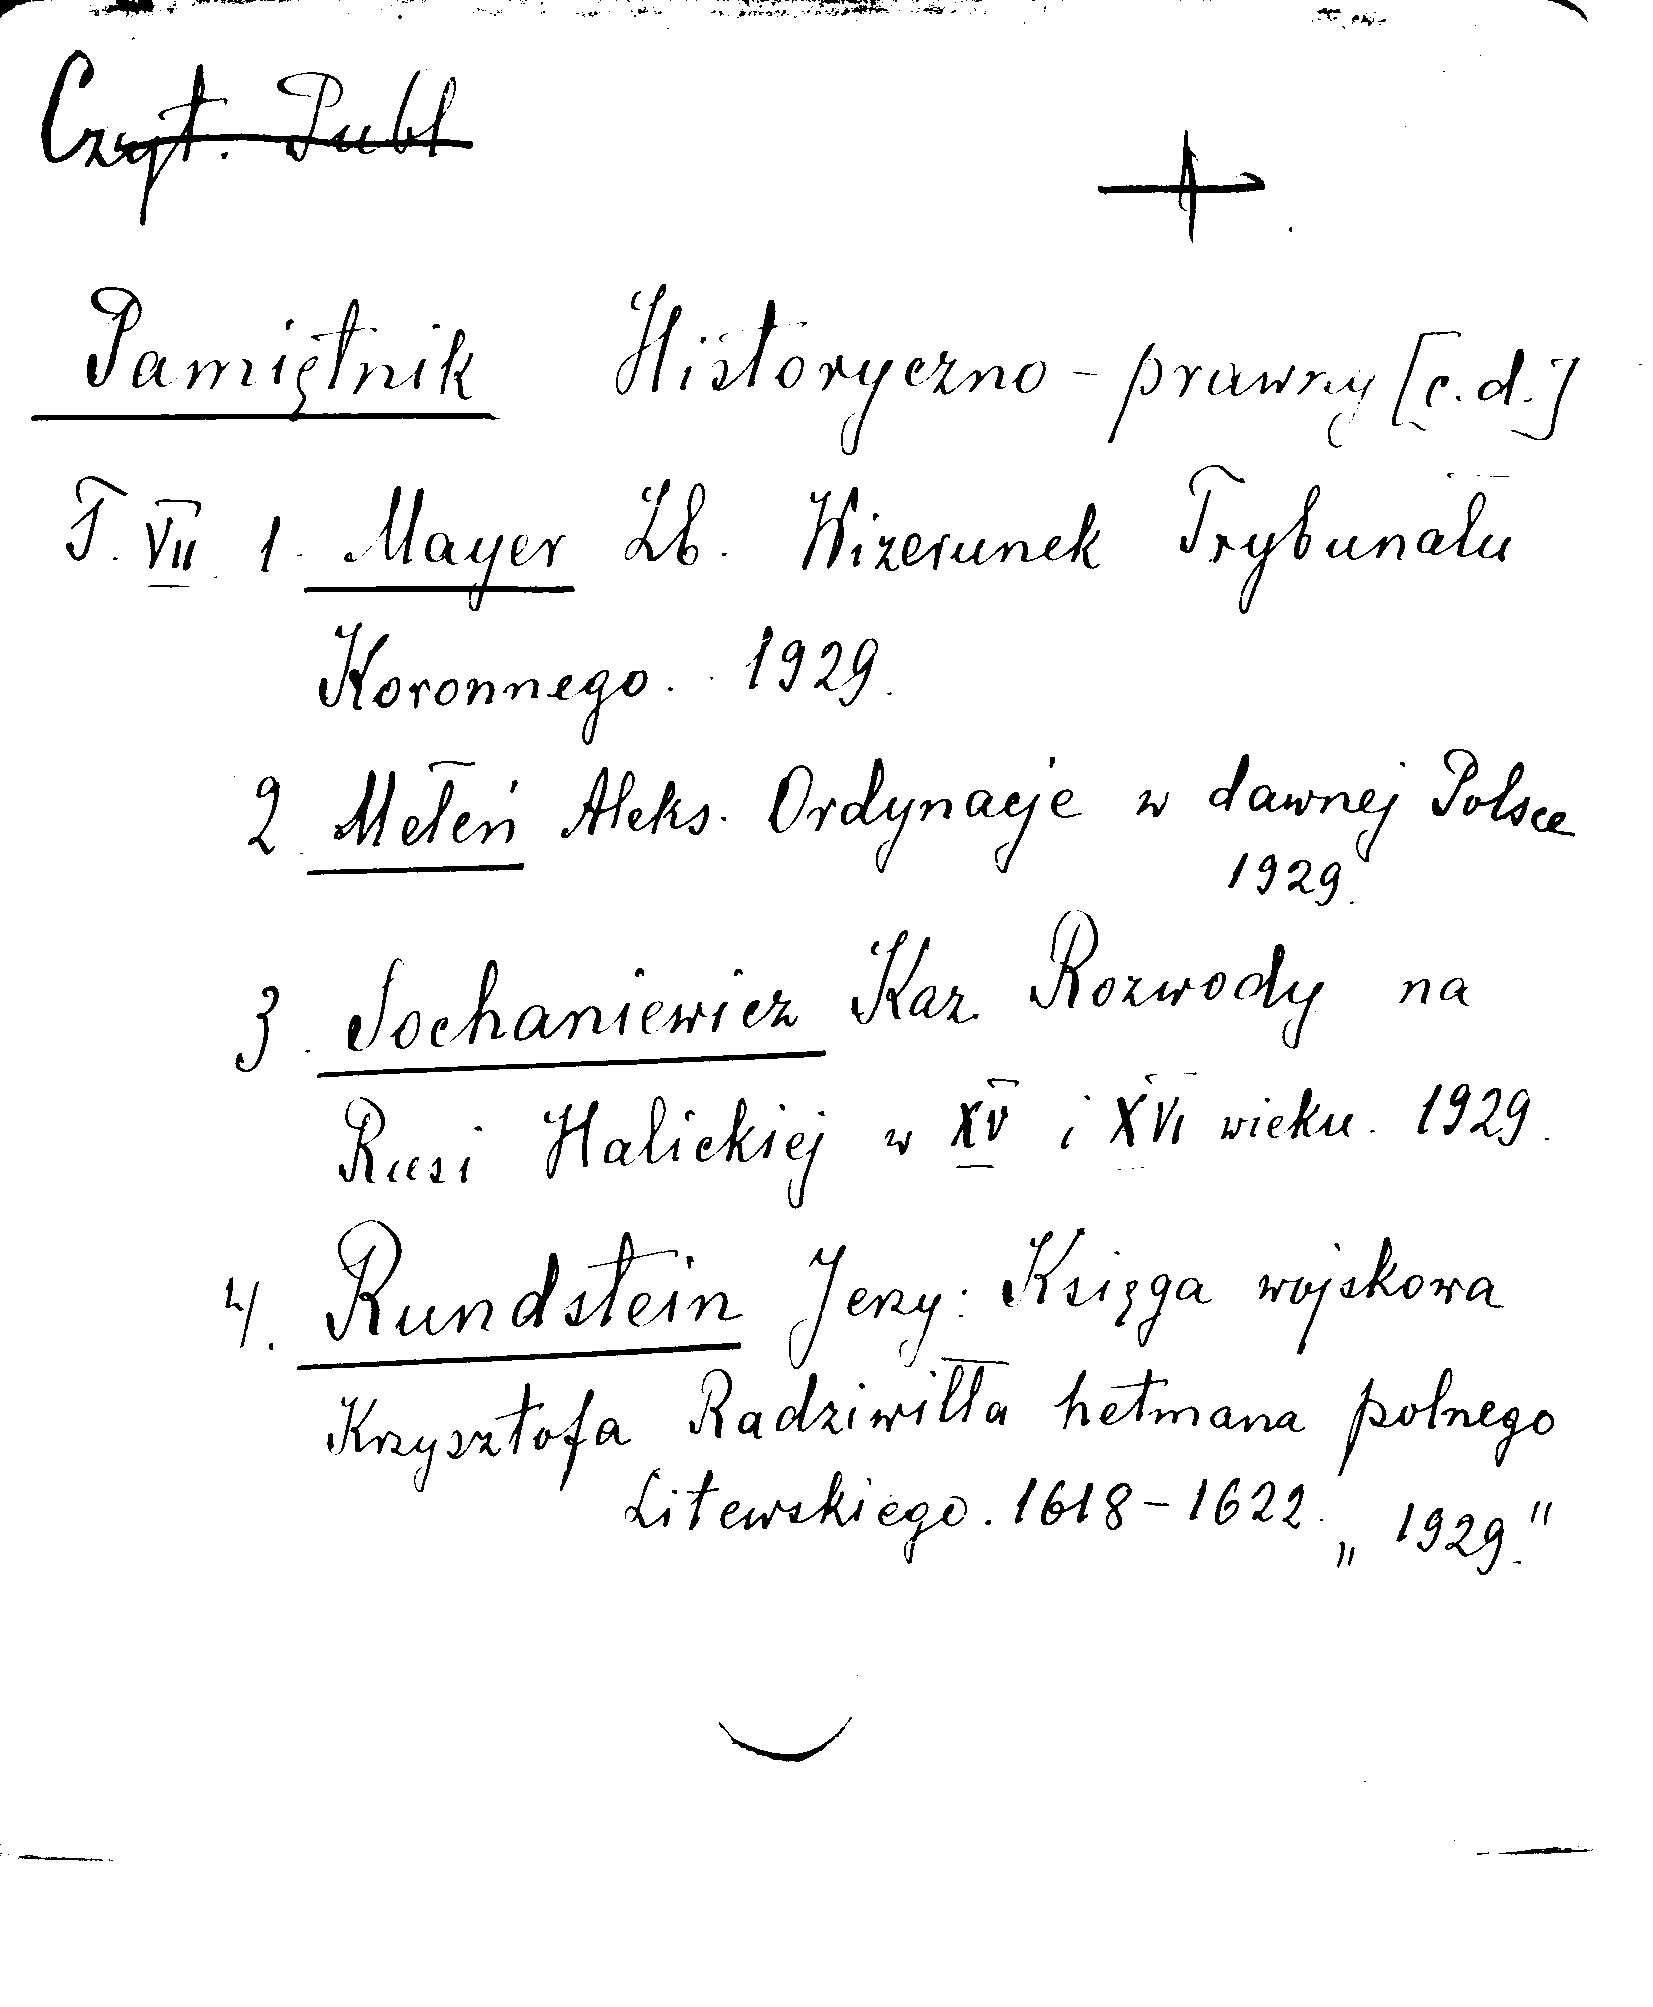 Czyt. Publ
Pamiętnik Historyczno-prawny [c.d.]
T. VII 1. Mayer Zb. Wizerunek Trybunału
Koronnego. 1929.
2. Meleń Aleks. Ordynacje w dawnej Polsce
1929.
3. Sochaniewicz Kaz. Rozwody na
Rusi Halickiej w XV i XVI wieku. 1929.
4. Rundstein Jerzy: Księga wojskowa
Krzysztofa Radziwiłła hetmana polnego
Litewskiego. 1618-1622. „1929."